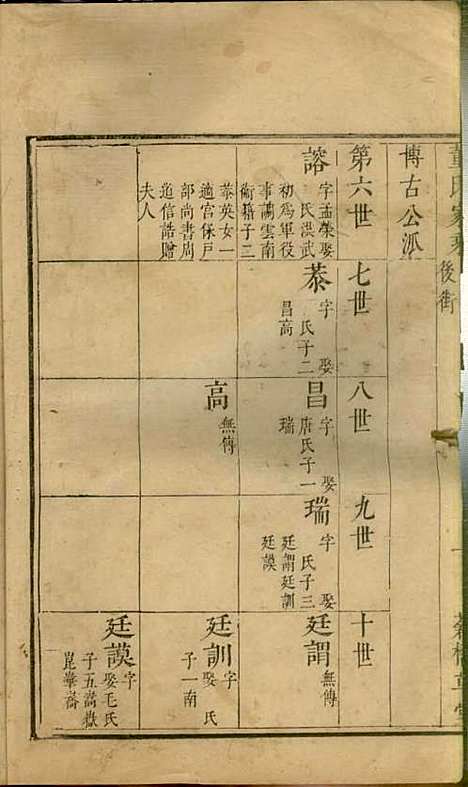 董氏家乘
後街
博古公泒
第六世
七世
八世
九世
十世
字孟榮娶
氏洪武
初為軍役
事謫雲南
衛籍子二
恭英女一
適宮保戶
部尚書周
道信誥贈
夫人
恭
字 娶
氏子二
昌高
昌
字 娶
唐氏子一
瑞
高
無傳
瑞
字 娶
氏子三
廷謂廷訓
廷謨
廷謂
無傳
廷訓
字
娶 氏
子一南
廷謨
字
娶毛氏
子五嵩嶽
崑崋